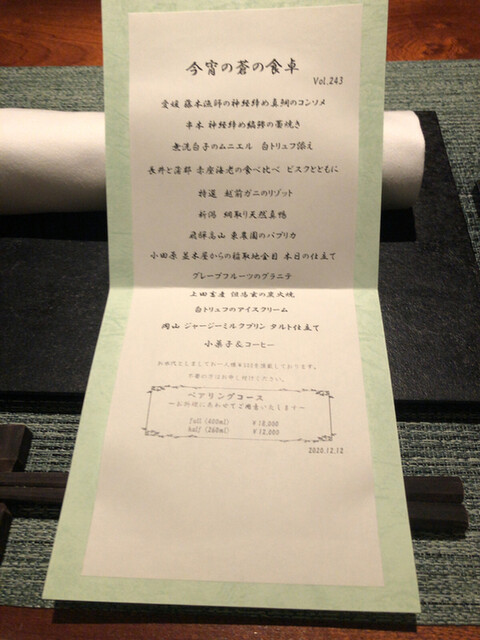 今宵の蒼の食卓
Vol.243
愛媛 藤本漁師の神経締め真鯛のコンソメ
串本 神経締め縞鯵の藁焼き
無洗白子のムニエル 白トリュフ添え
長井と蒲郡 赤座海老の食べ比べ ビスクとともに
特選 越前ガニのリゾット
新潟 網取り天然真鴨
飛騨高山 東農園のパプリカ
小田原 からの稲取地金目 本日の仕立て
グレープフルーツのグラニテ
上田畜産 但馬玄の炭火焼
白トリュフのアイスクリーム
岡山 ジャージーミルクプリン タルト仕立て
小菓子&コーヒー
お水代としましてお一人様¥500を頂戴しております。
不要の方はお申し付けください。
ペアリングコース
～お料理にあわせてご用意いたします～
full (400ml) ¥18,000
half (260ml) ¥12,000
2020.12.12